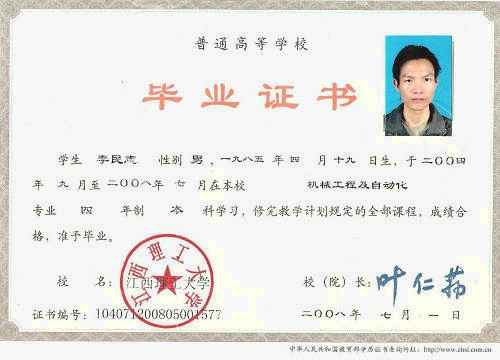 普通高等学校
毕业证书
学生 李民志 性别 男，一九八五年 四 月 十九 日生，于二〇〇四
年 九 月至二〇〇八年 七 月在本校 机械工程及自动化
专业 四 年制 本 科学习，修完教学计划规定的全部课程，成绩合
格，准予毕业。
校 名：江西理工大学
江西理工大学
校（院）长：
证书编号：104071200805001577
二〇〇八 年 七 月 一 日
中华人民共和国教育部学历证书查询网址：http://www.chsi.com.cn